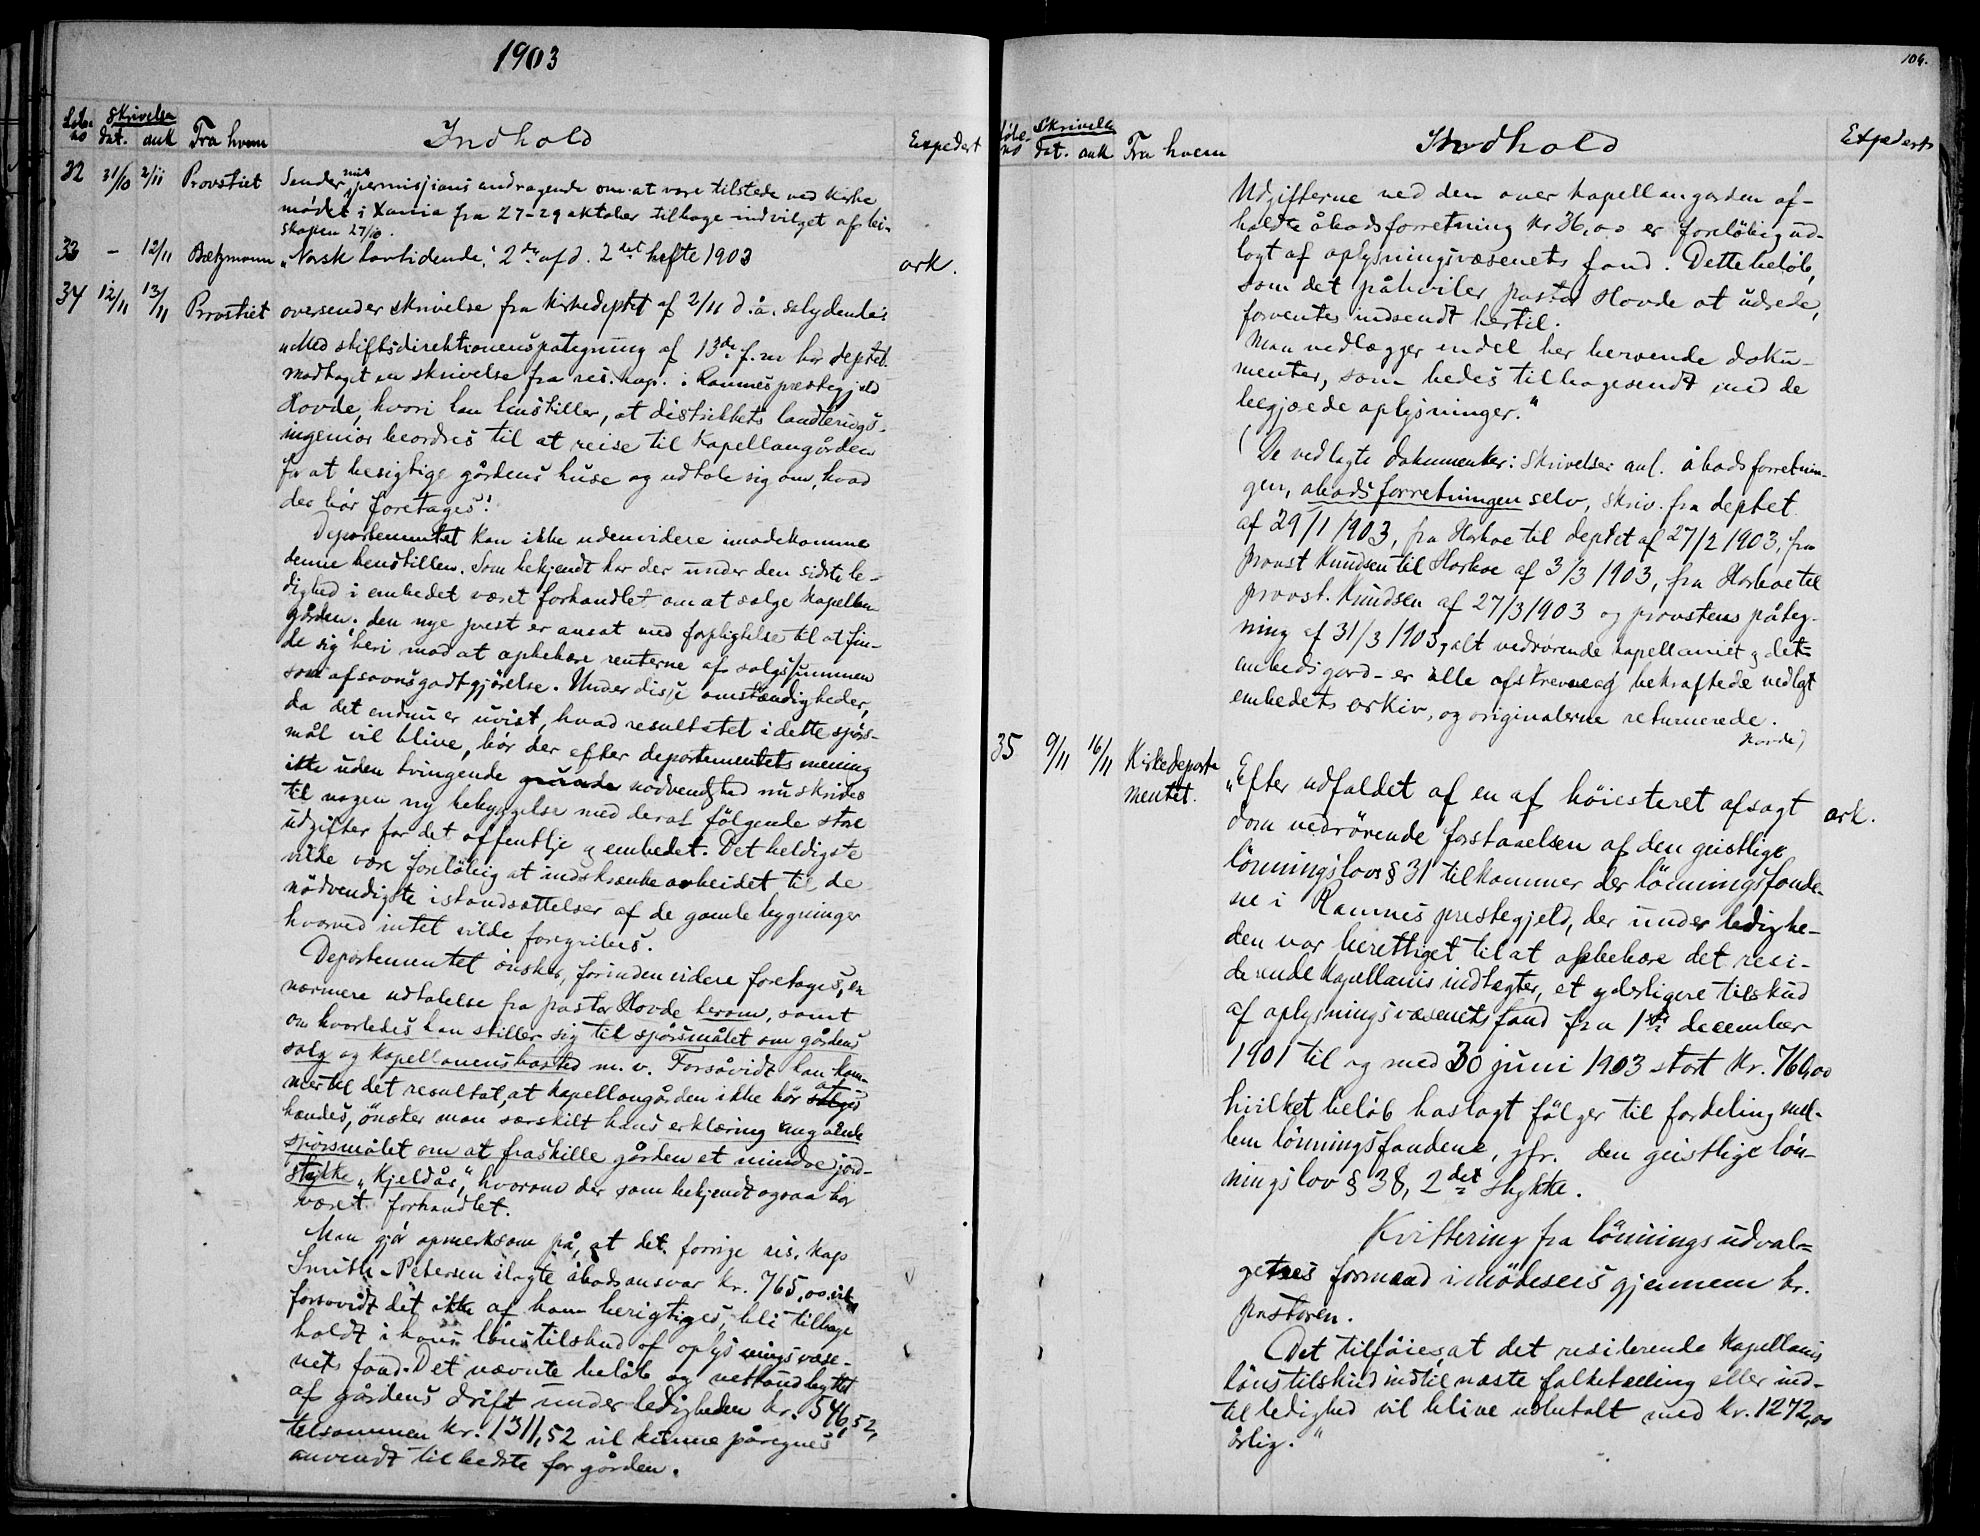 1903
Løbe-no Skrivelse dat. ank Fra hvem Indhold Expedert
32 31/10 2/11 Provstiet Sender mit permissjons andragende om at være tilstede ved Kirke
mødet i Xania fra 27-29 oktober tilbage indvilget af bi-
skopen 27/10.
33 - 12/11 Bætzmann "Norsk Lovtidende" 2den afd. 2det hefte 1903 ark.
34 12/11 13/11 Provstiet oversender skrivelse fra kirkedeptet af 2/11 d. å. salydende:
"Med stiftsdirektionens pategning af 13de f. m har deptet
modtaget en skrivelse fra res. kap. i Ramnes prestegjeld
Hovde, hvori han henstiller, at distriktets landbrugs-
ingeniør beordres til at reise til kapellangården
for at besigtige gårdens huse og udtale sig om, hvad
der bør foretages!
Departementet kan ikke udenvidere imødekomme
denne henstillen. Som bekjendt har der under den sidste le-
dighed i embedet været forhandlet om at sælge kapellan
gården; den nye prest er ansat med forpligtelse til at fin-
de sig heri mod at oppebære renterne af salgssummen
som afsavnsgodtgjørelse. Under disse omstændigheder,
da det endnu er uvist, hvad resultatet i dette spørs-
mål vil blive, bør der efter departementets mening
ikke uden tvingende grunde nødvendighed nu skrides
til nogen ny bebyggelse med deraf følgende store
udgifter for det offentlige og embedet. Det heldigste
vilde være foreløbig at indskrænke arbeidet til de
nødvendigste istandsættelser af de gamle bygninger
hvorved intet vilde foregribes.
Departementet ønsker, forinden videre foretages, en
nærmere udtalelse fra pastor Hovde herom, samt
om hvorledes han stiller sig til spørsmålet om gårdens
salg og kapellanens bosted m. v. Forsåvidt han kom-
mer til det resultat, at kapellangården ikke bør sælges af
hændes, ønsker man særskilt hans erklæring angående
spørsmålet om at fraskille gården et mindre jord-
stykke "Kjeldås", hvorom der som bekjendt ogsaa har
været forhandlet.
Man gjør opmerksom på, at det forrige res. kap
Smith-Petersen ilagte åbodsansvar kr. 765,00 vil
forsovidt det ikke af ham berigtiges, bli tilbage
holdt i hans lønstilskud af oplysningsvæse-
nets fond. Det nævnte beløb og nettoudbyttet
af gårdens drift under ledigheden kr. 546,52,
tilsammen kr. 1311,52 vil kunne påregnes
anvendt til bedste for gården.
104.
Løbe-no Skrivelse dat. ank Fra hvem Indhold Expedert
Udgifterne ved den over kapellangården af-
holdte åbodsforretning kr 36,00 er foreløbig ud-
lagt af oplysningsvæsenets fond. Dette beløb,
som det påhviler pastor Hovde at udrede,
forventes indsendt hertil.
Man vedlægger endel her beroende doku-
menter, som bedes tilbagesendt med de
begjærede oplysninger."
(De vedlagte dokumenter: Skrivelse anl. åbodsforretnin-
gen, åbodsforretningen selv, skriv. fra deptet
af 29/1 1903, fra Horboe til deptet af 27/2 1903, fra
provst Knudsen til Horboe af 3/3 1903, fra Horboe til
provst. Knudsen af 27/3 1903 og provstens påteg-
ning af 31/3 1903, alt vedrørende kapellaniet og dets
embedsgård - er alle afskrevne og bekræftede vedlagt
embedets arkiv, og originalerne returnerede.
Hovde)
35 9/11 16/11 Kirkedeparte
mentet. "Efter udfaldet af en af høiesteret afsagt ark.
dom vedrørende forstaaelsen af den geistlige
lønningslovs § 31 tilkommer der lønningsfonde-
ne i Ramnes prestegjeld, der under ledighe-
den var berettiget til at oppebære det resi-
derende kapellanis indtægter, et yderligere tilskud
af oplysningsvæsenets fond fra 1ste december
1901 til og med 30 juni 1903 stort kr. 760,00
hvilket beløb hoslagt følger til fordeling mel-
lem lønningsfondene, jfr. den geistlige løn-
ningslov § 38, 2det stykke.
Kvittering fra lønningsudval-
getses formand imødesees gjennem hr.
pastoren.
Det tilføies, at det residerende kapellanis
lønstilskud indtil næste folketælling eller ind-
til ledighed vil blive udbetalt med kr. 1272,00
årlig."